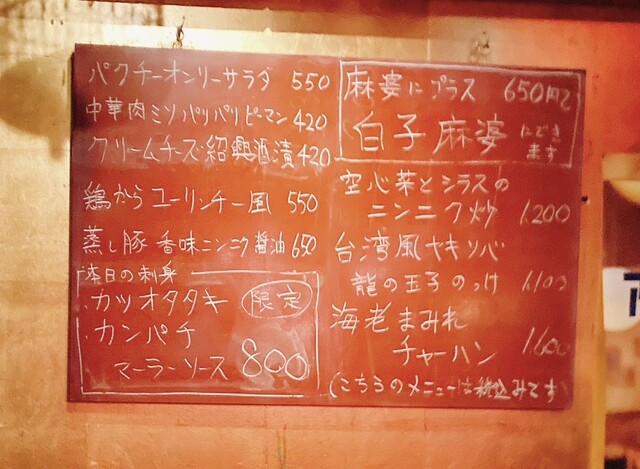 パクチーオンリーサラダ 550
中華肉ミソパリパリピーマン 420
クリームチーズ紹興酒漬 420
鶏からユーリンチー風 550
蒸し豚 香味ニンニク醤油 650
本日の刺身
・カツオタタキ 限定
・カンパチ
マーラーソース 800
麻婆にプラス 650円で
白子麻婆 にでき
ます
空心菜とシラスの
ニンニク炒 1,200
台湾風ヤキソバ
龍の玉子のっけ 1,100
海老まみれ
チャーハン 1,600
(こちらのメニューは税込みです)